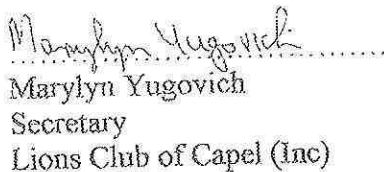 Marylyn Yugovich
Marylyn Yugovich
Secretary
Lions Club of Capel (Inc)